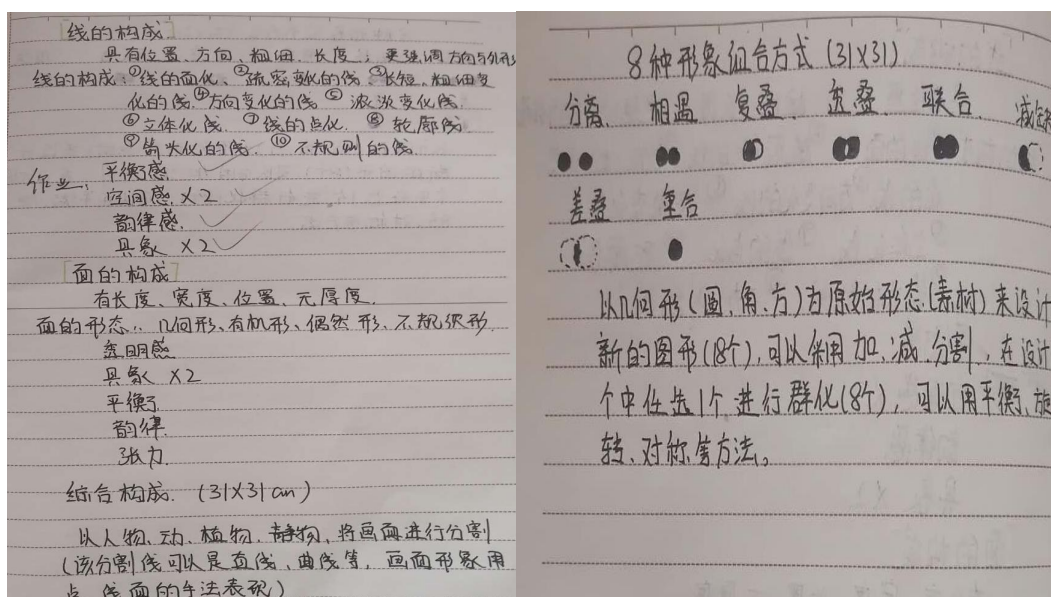 线的构成
具有位置、方向、粗细、长度；更强调方向与外形
线的构成：①线的面化、②疏密变化的线 ③长短、粗细变
化的线、④方向变化的线 ⑤浓淡变化线
⑥立体化线、⑦线的点化、⑧轮廓线
⑨箭头化的线、⑩不规则的线
作业：平衡感
空间感 ×2
韵律感
具象 ×2
面的构成
有长度、宽度、位置、无厚度
面的形态：几何形、有机形、偶然形、不规则形
透明感
具象 ×2
平衡
韵律
张力
综合构成 (31×31cm)
以人物、动、植物、静物，将画面进行分割
(该分割线可以是直线、曲线等，画面形象用
点、线面的手法表现)
8种形象组合方式 (31×31)
分离 相遇 复叠 透叠 联合 减缺
差叠 重合
以几何形（圆、角、方）为原始形态（素材）来设计
新的图形(18个)，可以采用加、减、分割，在设计
个中任选1个进行群化(8个)，可以用平衡、旋
转、对称等方法。